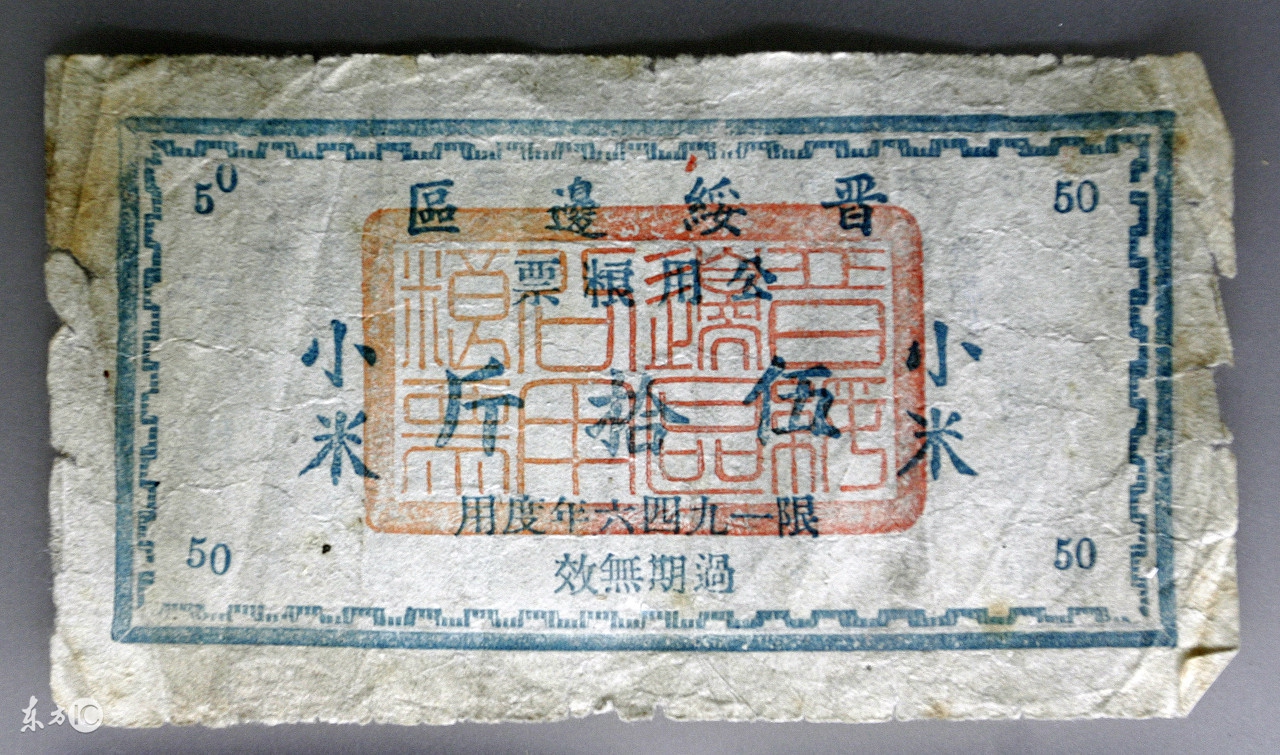 50
50
晋綏邊區
公用粮票
小米
伍拾斤
小米
限一九四六年度用
過期無效
50
50
晉綏
邊區
公用
粮票
东方IC